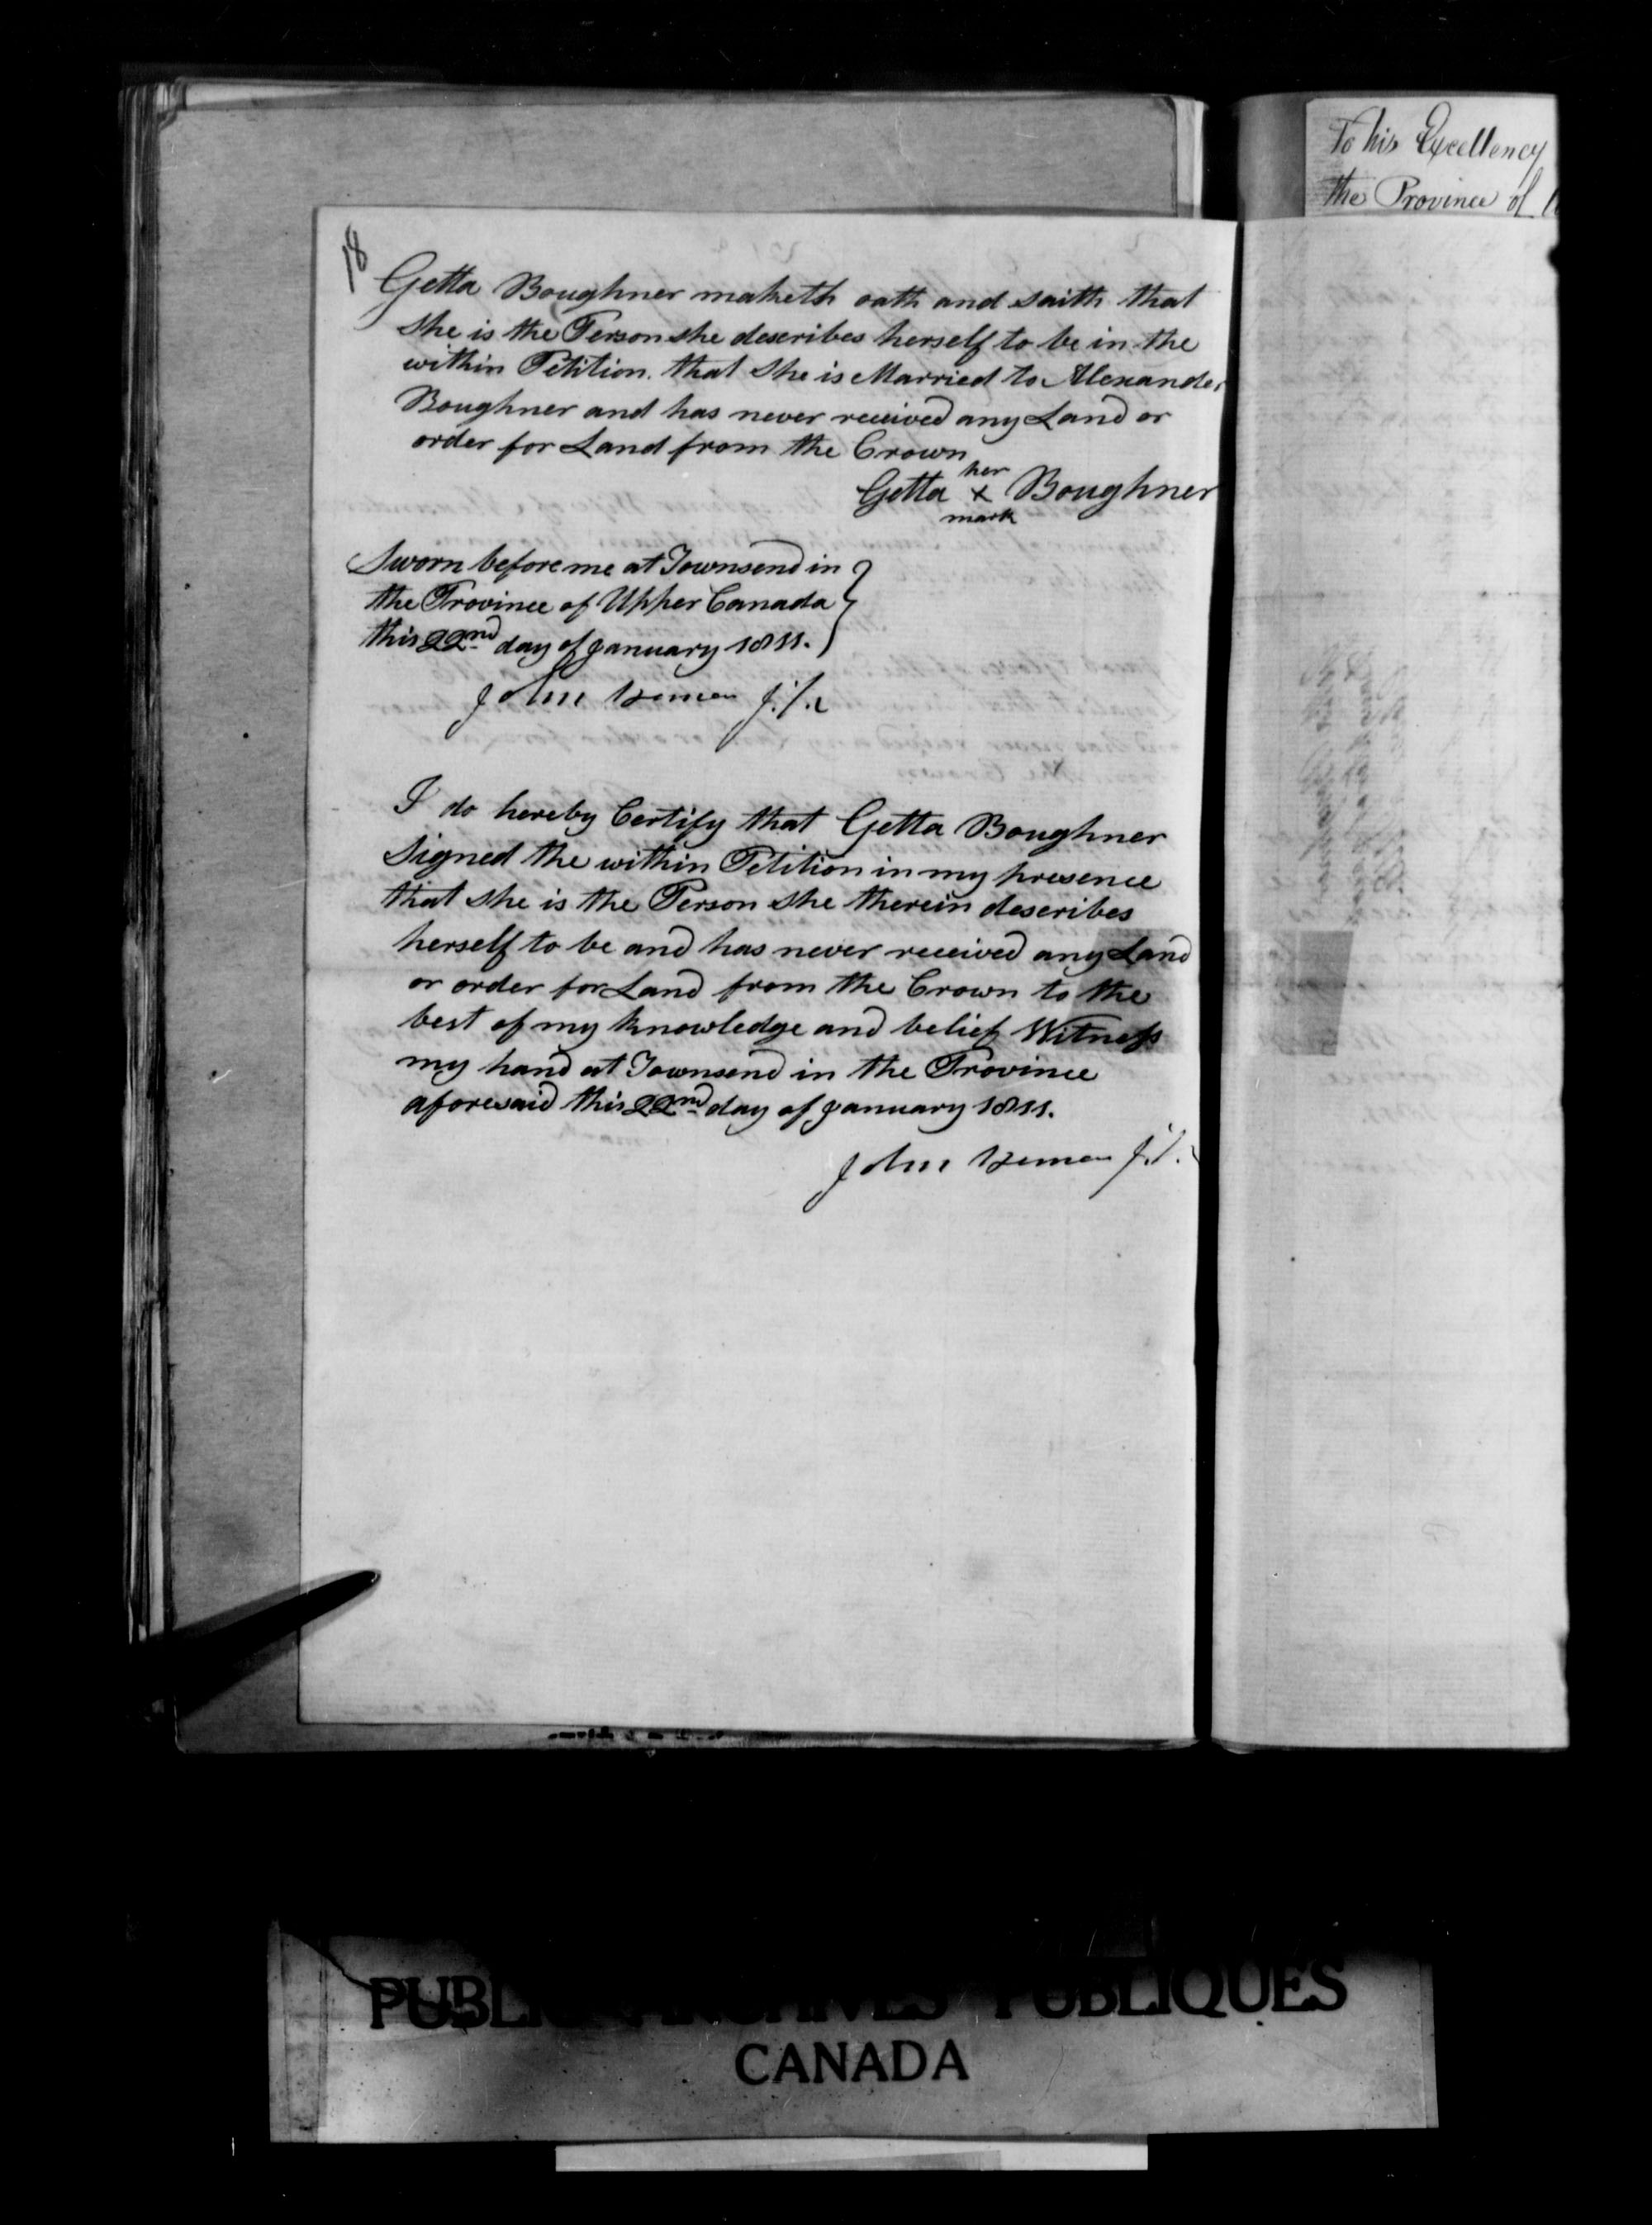 18
To his Excellency
the Province of
Getta Boughner maketh oath and saith that
she is the Person she describes herself to be in the
within Petition. that She is Married to Alexander
Boughner and has never received any Land or
order for Land from the Crown
her
Getta x Boughner
mark
Sworn before me at Townsend in
the Province of Upper Canada
this 22nd day of January 1811.
John
I do hereby Certify that Getta Boughner
Signed the within Petition in my presence
that she is the Person she therein describes
herself to be and has never received any Land
or order for Land from the Crown to the
best of my knowledge and belief Witness
my hand at Townsend in the Province
aforesaid this 22nd day of January 1811.
John
PUBLIC ARCHIVES PUBLIQUES
CANADA